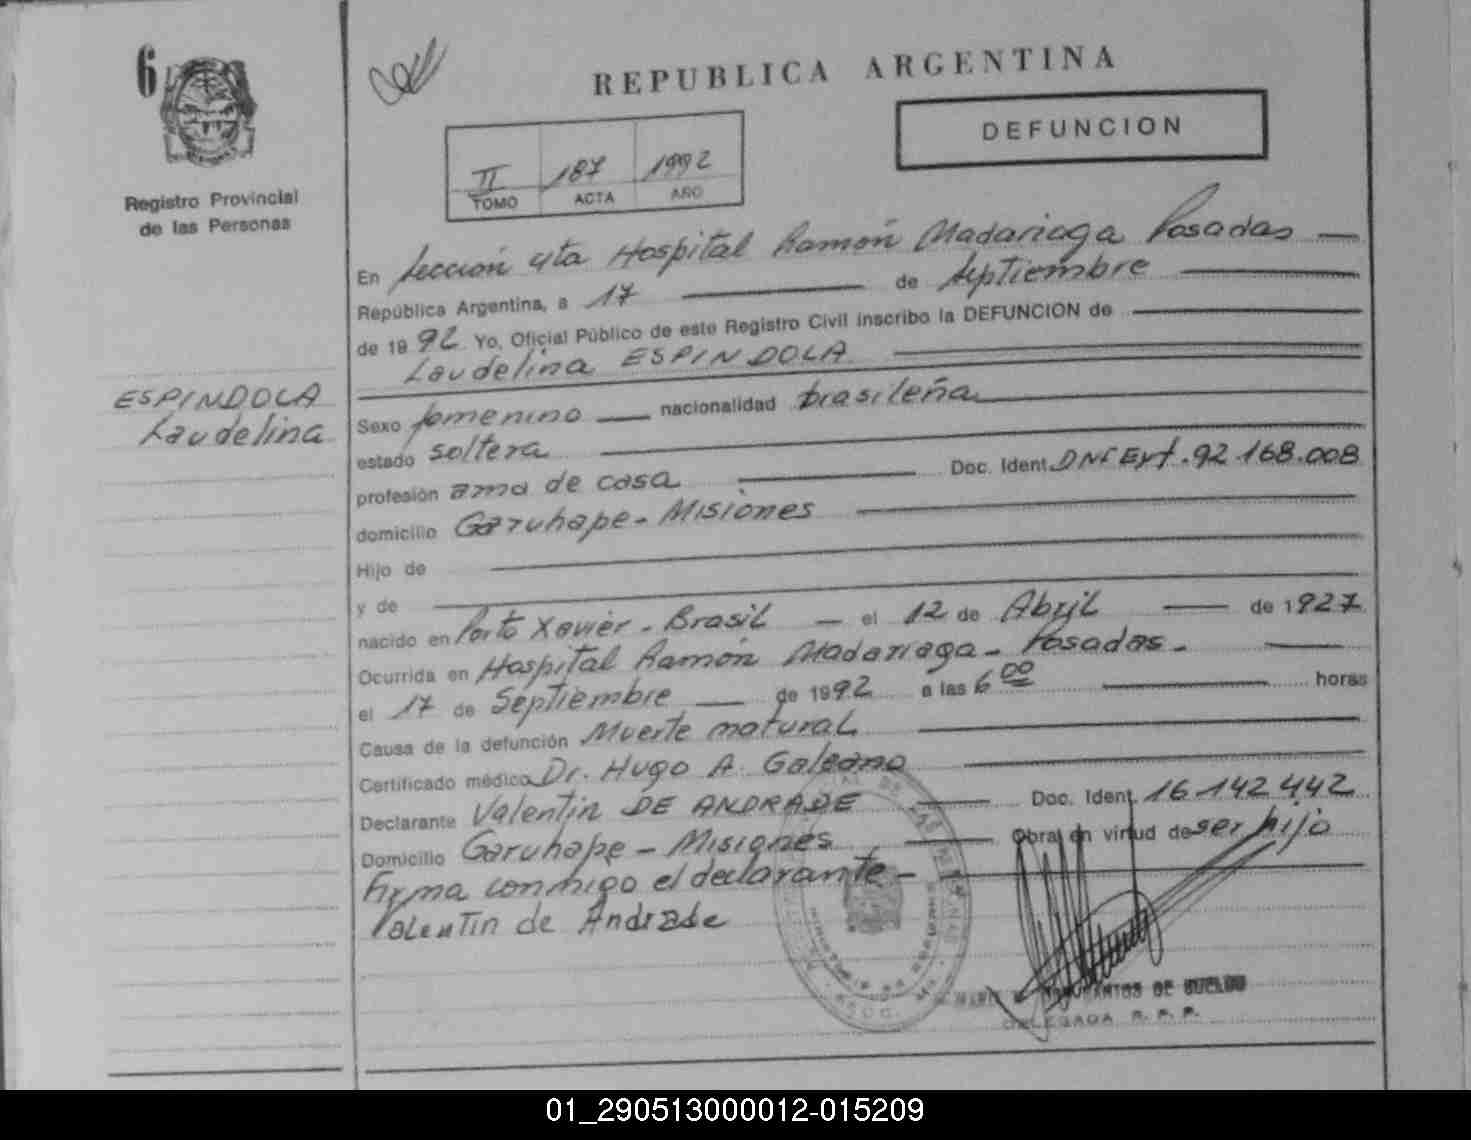 6
REPUBLICA ARGENTINA
DEFUNCION
II 187 1992
TOMO ACTA AÑO
Registro Provincial
de las Personas
En Sección 4ta Hospital Ramón Madariaga Posadas
República Argentina, a 17 de Septiembre
de 1992 Yo, Oficial Público de este Registro Civil inscribo la DEFUNCION de
Laudelina ESPINDOLA
ESPINDOLA
Laudelina
Sexo femenino nacionalidad brasileña
estado soltera
profesión ama de casa Doc. Ident. DNI Ext. 92.168.008
domicilio Garuhape - Misiones
Hijo de
y de
nacido en Porto Xavier - Brasil el 12 de Abril de 1927
Ocurrida en Hospital Ramón Madariaga - Posadas -
el 17 de Septiembre de 1992 a las 6 00 horas
Causa de la defunción Muerte natural
Certificado médico Dr. Hugo A. Galeano
Declarante Valentin DE ANDRADE Doc. Ident. 16 142 442
Domicilio Garuhape - Misiones Obra en virtud de ser hijo
Firma conmigo el declarante -
Valentin de Andrade
DE SUELDO
DELEGADA R. P. P.
01_290513000012-015209